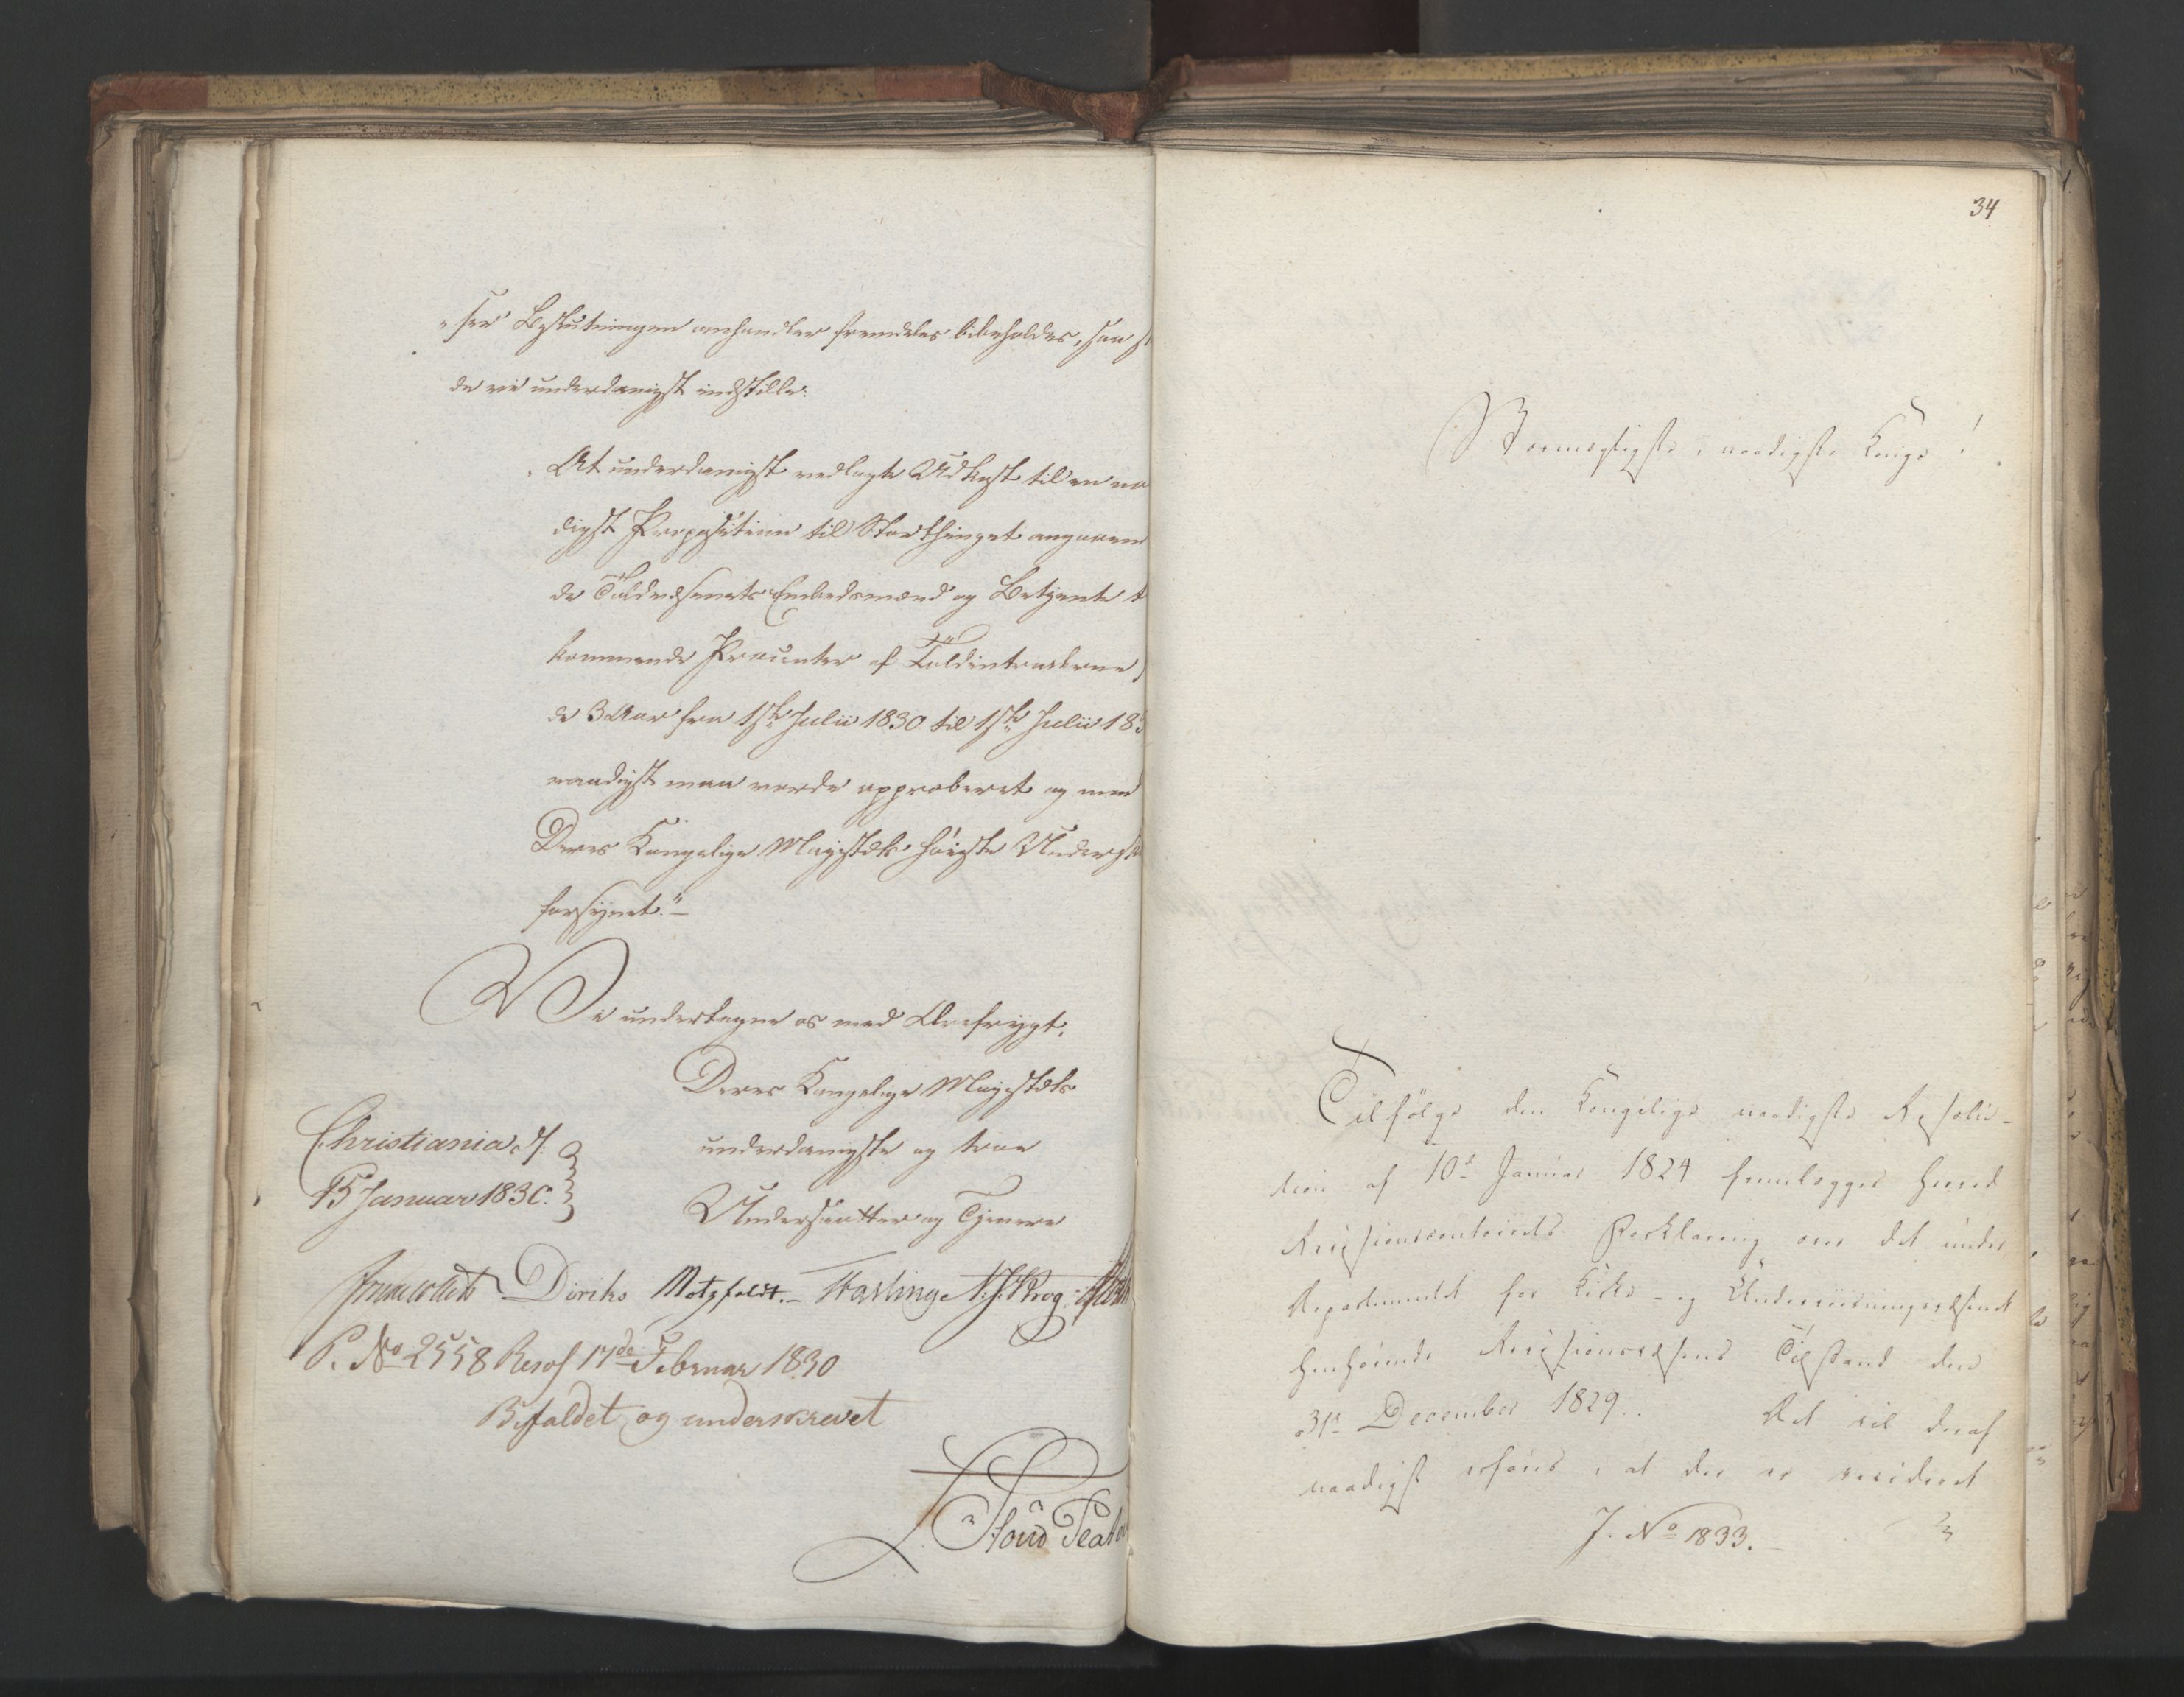 ser Beslutningen omhandler fremdeles bibeholdes, saa
de vi underdanigst indstille:
At underdanigst vedlagte Udkast til en naa
digst Proposition til Storthinget angaaen
de Toldvæsenets Embedsmænd og Betjente
kommende Procenter af Toldintraderne
de 3 Aar fra 1ste Julii 1830 til 1ste Julii 183
naadigst maa vorde approberet og med
Deres Kongelige Majestæts høieste Unders
forsynet."
Vi undertegne os med Ærefrygt,
Deres Kongelige Majestæts
underdanigste og troe
Undersaatter og Tjenere
Christiania d.
15 Januar 1830.
Jonas Collett Diriks Motzfeldt. Fasting N. J. Krog
P. No 2558 Resol 17de Februar 1830
Befaldet og underskrevet
34
Stormægtigste, naadigste Konge!
Tilfølge den Kongelige naadigste Resolu-
tion af 10de Januar 1824 fremlægges herved
Revisionscontoirets Forklaring over det under
Departementet for Kirke- og Underviisningsvæsenet
henhørende Revisionsvæsens Tilstand den
31te December 1829. Det vil deraf
naadigst erfares, at der er revideret
J. No 1833.